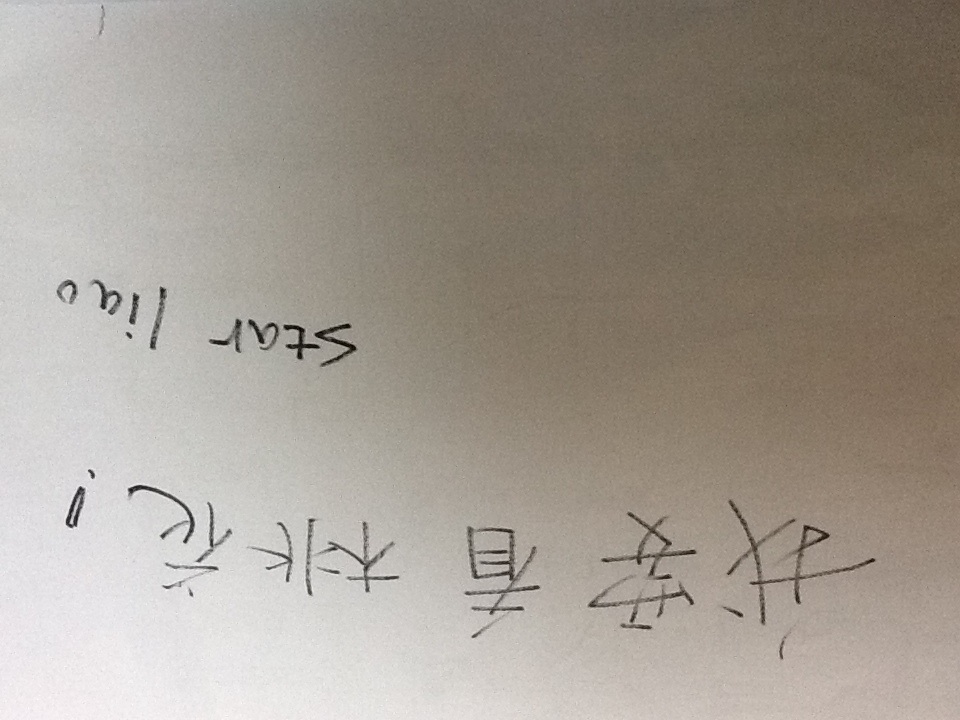 我要看桃花!
star liao